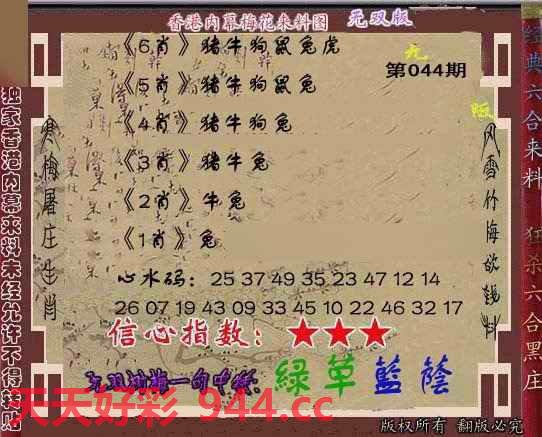 香港内幕梅花来料图 无双版
《6肖》猪牛狗鼠兔虎
第044期
《5肖》猪牛狗鼠兔
《4肖》猪牛狗兔
《3肖》猪牛兔
《2肖》牛兔
《1肖》兔
心水码：25 37 49 35 23 47 12 14
26 07 19 43 09 33 45 10 22 46 32 17
信心指数：★★★
緑草藍蔭
天天好彩 944.cc
版权所有 翻版必究
独家香港内幕来料未经允许不得转贴
寒梅屠庄生肖
经典六合来料 狂杀六合黑庄